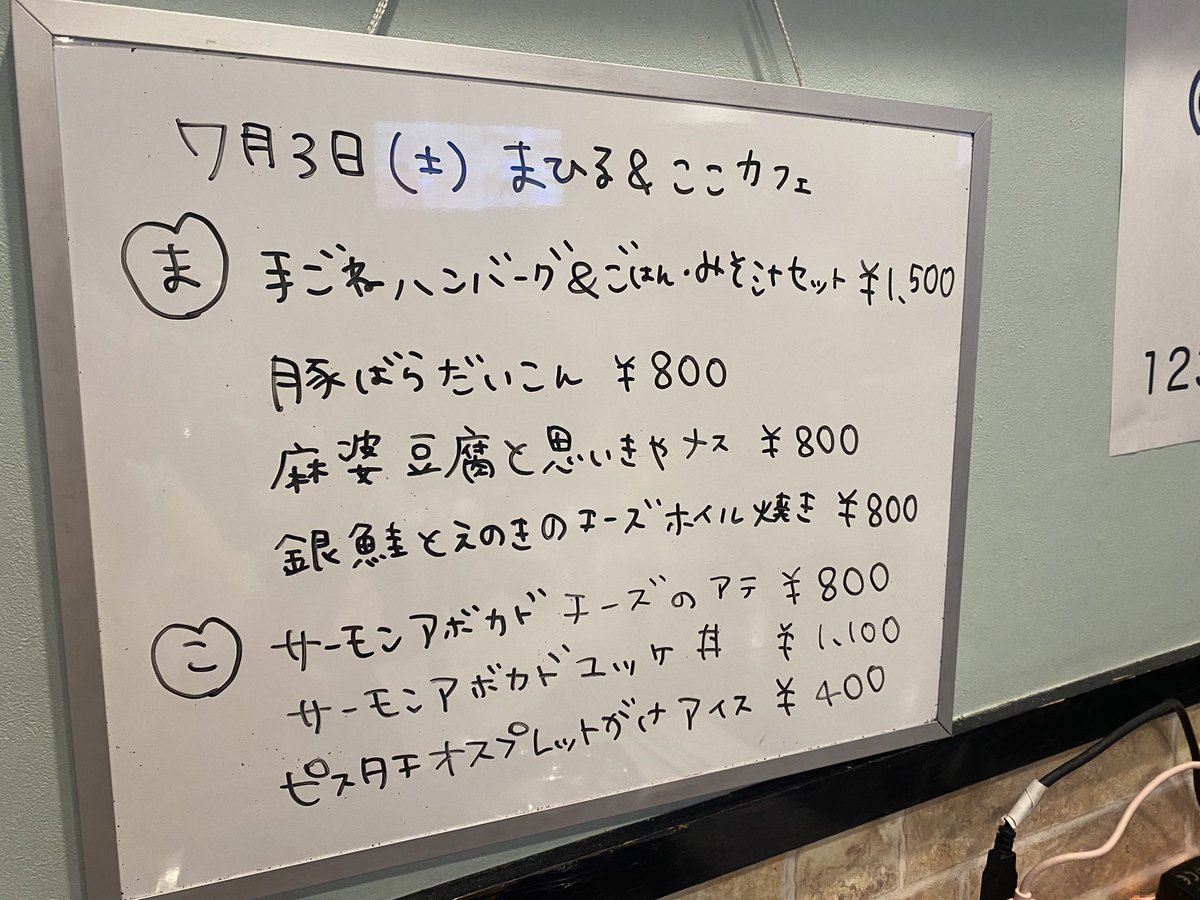 7月3日(土) まひる&ここカフェ
ま 手ごねハンバーグ&ごはん・みそ汁セット ¥1,500
豚ばらだいこん ¥800
麻婆豆腐と思いきやナス ¥800
銀鮭とえのきのチーズホイル焼き ¥800
こ サーモンアボカドチーズのアテ ¥800
サーモンアボカドユッケ丼 ¥1,100
ピスタチオスプレットがけアイス ¥400
123